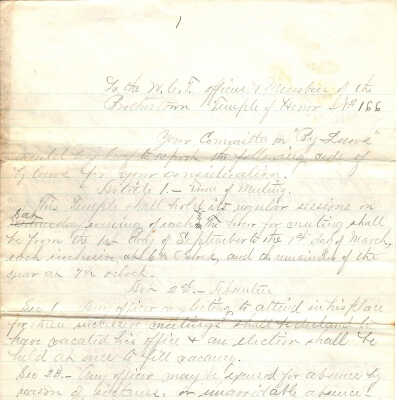 1
To the W.C.T. officers & Members of the
Brothertown Temple of Honor No 166
Your Committee on "By Laws"
would beg leave to report the following code of
by laws for your consideration.
Article 1. – Time of Meeting.
This Temple shall hold its regular sessions on
Sat evening of each The hour for meeting shall
be from the 1st day of September to the 1st day of March,
each inclusive at 6½ o'clock, and the remainder of the
year at 7½ o'clock.
Sec 1. Any officer neglecting to attend in his place
for three successive meetings shall be declared to
have vacated his office & an election shall be
held at once to fill vacancy.
Sec 2d. – Any officer may be excused for absence by
reason of sickness, or unavoidable absence